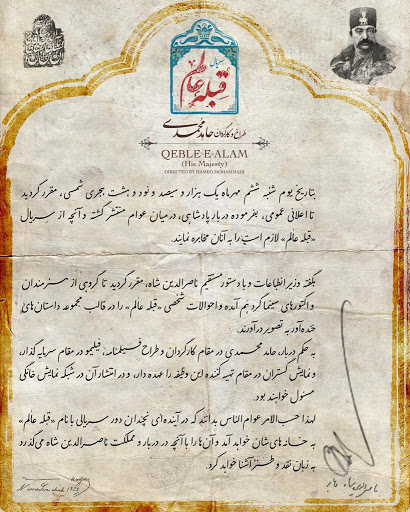 سریال
قبله عالم
طراح و کارگردان حامد محمدی
QEBLE-E-ALAM
(His Majesty)
DIRECTED BY HAMED MOHAMMADI
بتاریخ یوم شنبه ششم مهرماه یک هزار و سیصد و نود و هشت هجری شمسی، مقرر گردید
تا اعلانی عمومی، بفرموده دربار پادشاهی، در میان عوام منتشر گشته و آنچه از سریال
«قبله عالم» لازم است را به آنان مخابره نمایند.
بگفته وزیر انطباعات و با دستور مستقیم ناصرالدین شاه، مقرر گردید تا گروهی از هنرمندان
و اکتورهای سینما گرد هم آمده و احوالات شخصی «قبله عالم» را در قالب مجموعه داستان‌های
خنده‌آور به تصویر درآورند.
به حکم دربار، حامد محمدی در مقام کارگردان و طراح فیلمنامه، فیلیمو در مقام سرمایه گذار،
و نمایش گستران در مقام تهیه کننده این وظیفه را عهده دار، و در انتشار آن در شبکه نمایش خانگی
مسئول خواهند بود.
لهذا حسب الامر عوام الناس بدانند که در آینده‌ای نچندان دور سریالی با نام «قبله عالم»
به خانه‌های شان خواهد آمد و آن‌ها را با آنچه در دربار و مملکت ناصرالدین شاه می‌گذرد
به زبان نقد و طنز آشنا خواهد کرد.